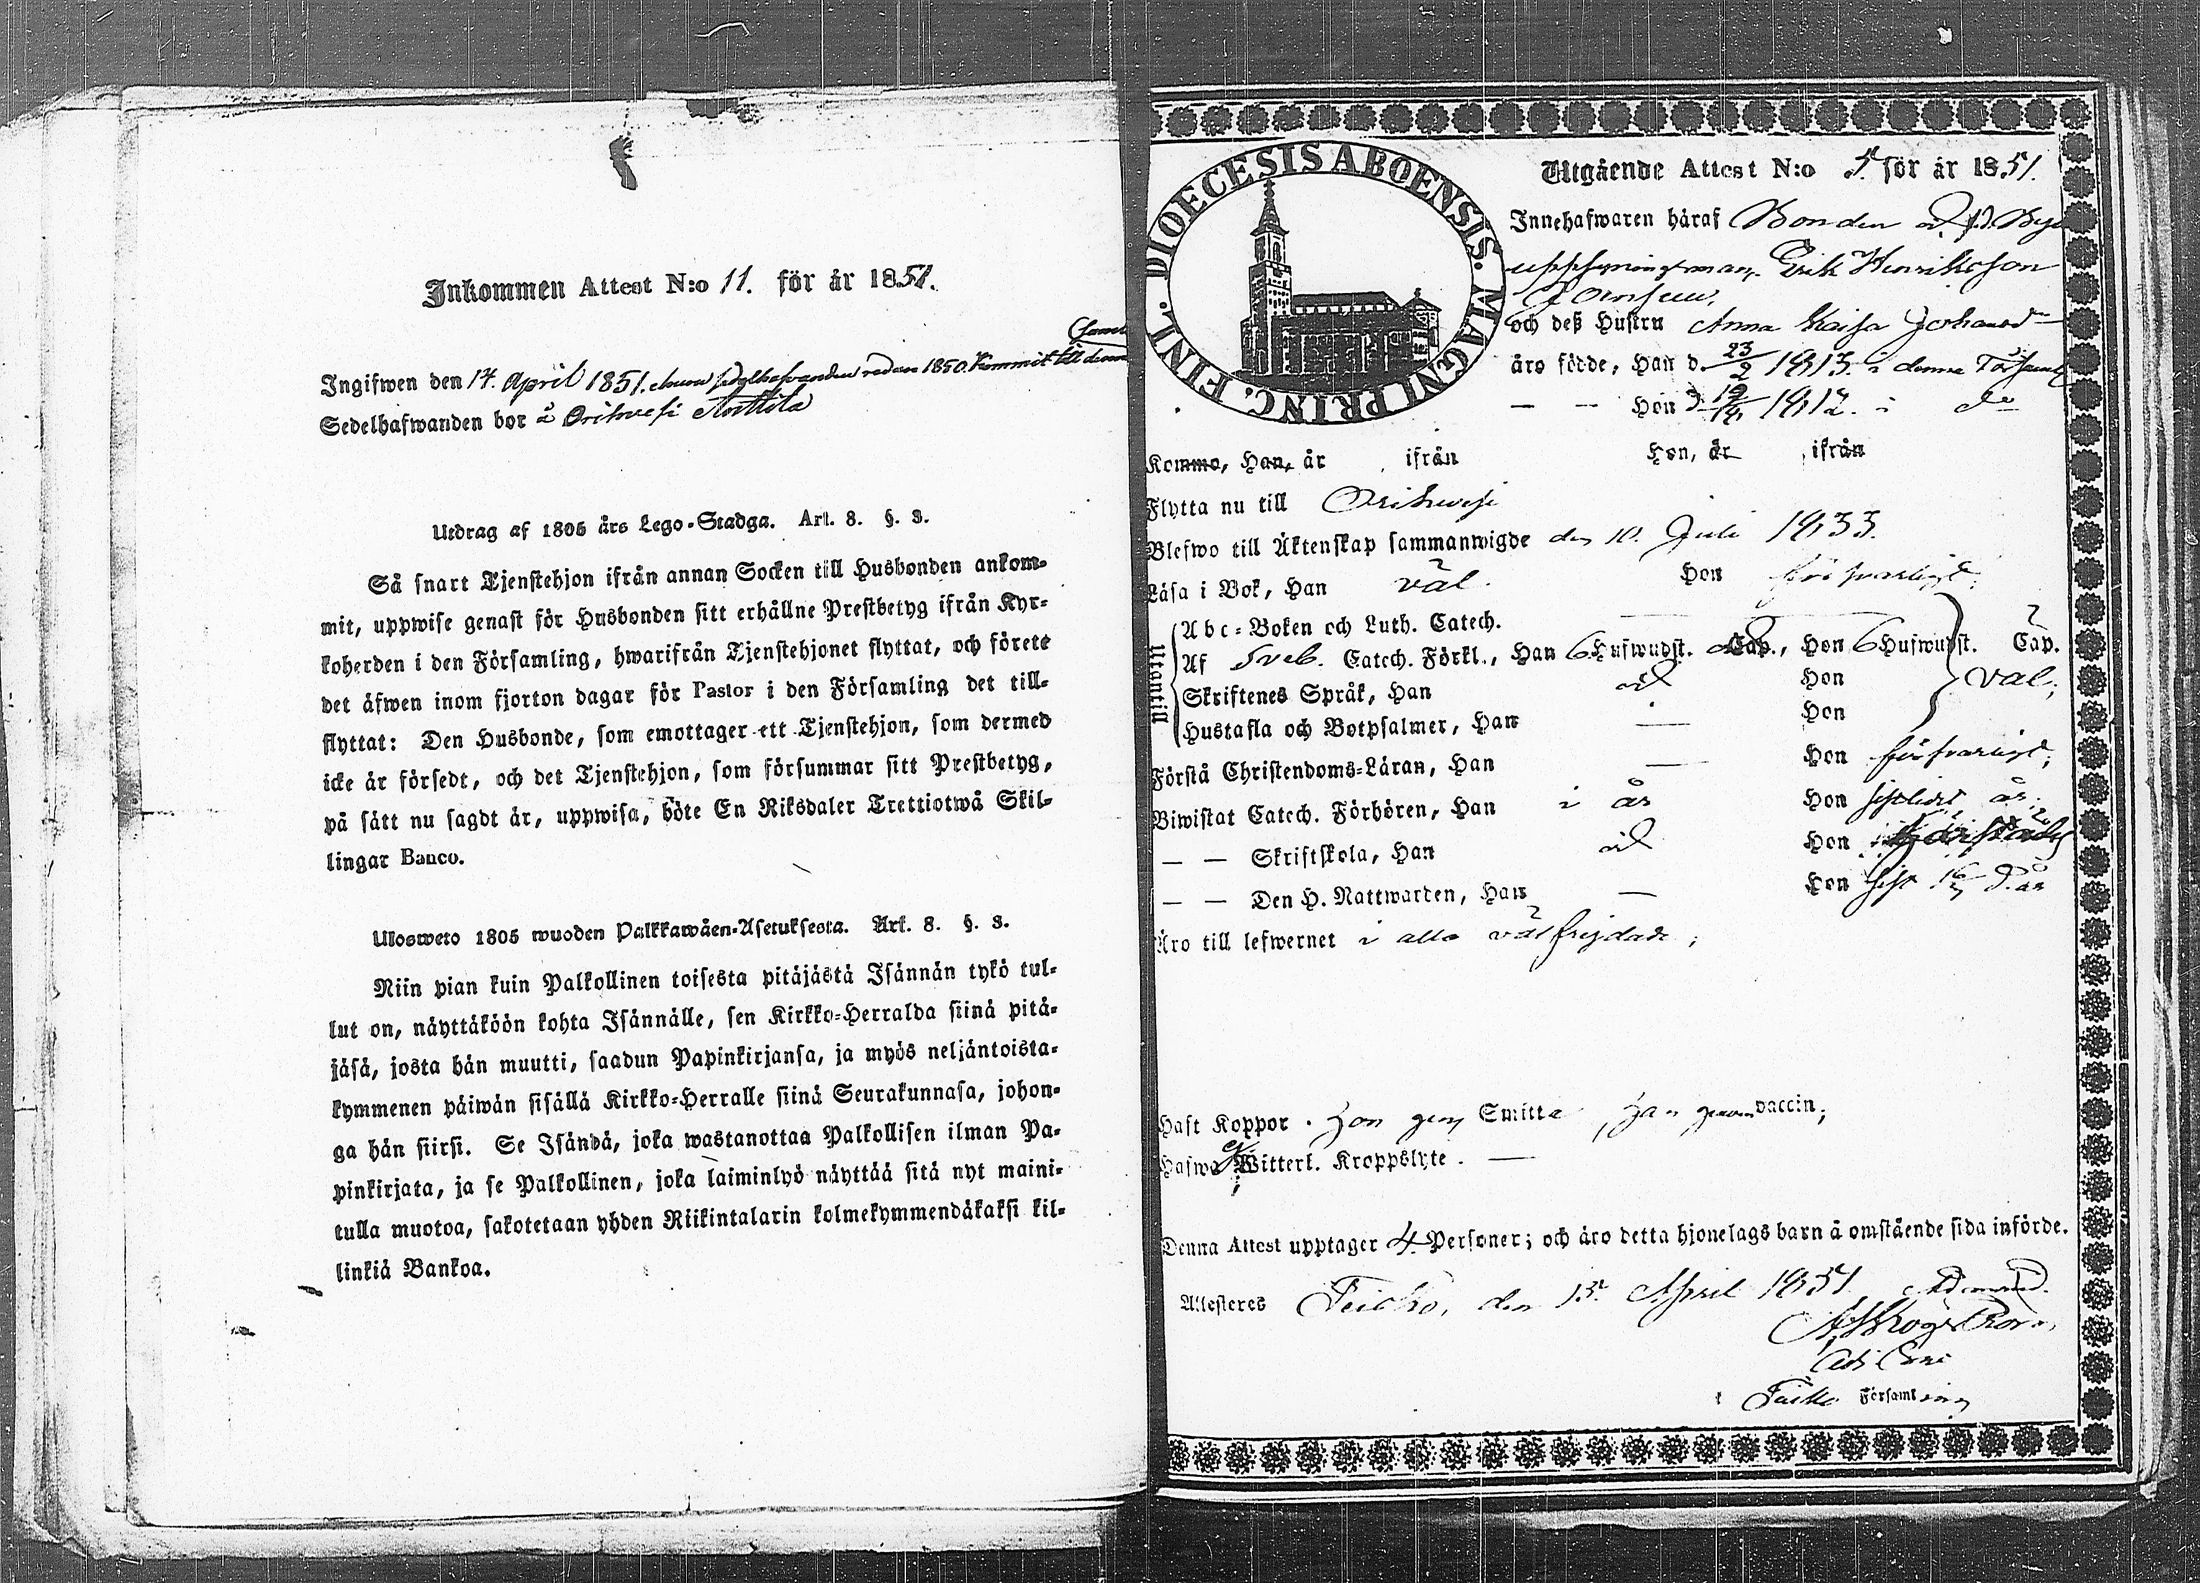 Inkommen Attest N:o 11. för år 1851.
Ingifwen den 17. April 1851. redan 1850. kommit till denna
Sedelhafwanden bor å Orihvesi
Utdrag af 1805 års Lego-Stadga. Art. 8. §. 3.
Så snart Tjenstehjon ifrån annan Socken till Husbonden ankom-
mit, uppwise genast för Husbonden sitt erhållne Prestbetyg ifrån Kyr-
koherden i den Församling, hwarifrån Tjenstehjonet flyttat, och förete
det äfwen inom fjorton dagar för Pastor i den Församling det till-
flyttat: Den Husbonde, som emottager ett Tjenstehjon, som dermed
icke är försedt, och det Tjenstehjon, som försummar sitt Prestbetyg,
på sätt nu sagdt är, uppwisa, böte En Riksdaler Trettiotwå Skil-
lingar Banco.
Ulosweto 1805 wuoden Palkkawäen-Asetuksesta. Art. 8. §. 3.
Niin pian kuin Palkollinen toisesta pitäjästä Isännän tykö tul-
lut on, näyttäköön kohta Isännälle, sen Kirkko-Herralda siinä pitä-
jäsä, josta hän muutti, saadun Papinkirjansa, ja myös neljäntoista-
kymmenen päiwän sisällä Kirkko-Herralle siinä Seurakunnasa, johon-
ga hän siirsi. Se Isändä, joka wastanottaa Palkollisen ilman Pa-
pinkirjata, ja se Palkollinen, joka laiminlyö näyttää sitä nyt maini-
tulla muotoa, sakotetaan yhden Riikintalarin kolmekymmendäkaksi kil-
linkiä Bankoa.
DIOECESIS ABOENSIS. MAGNI PRINC. FINL.
Utgående Attest N:o 5. för år 1851.
Innehafwaren häraf Bonden
Erik Henriksson
och deß Hustru Anna Kaisa Johansd
äro födde, Han d. 23/2 1813. i denna Församl
— — Hon d. 1812. i do
Komma, Han, år ifrån Hon, år ifrån
Flytta nu till Orihvesi
Blefwo till Äktenskap sammanwigde den 10. Juli 1833.
Läsa i Bok, Han väl. Hon försvarligt;
Utantill
Abc-Boken och Luth. Catech.
Af Sveb. Catech. Förkl., Han 6 Hufwudst. Cap., Hon 6 Hufwudst. 2 Cap.
Skriftenes Språk, Han Hon väl;
Hustafla och Botpsalmer, Han — Hon
Förstå Christendoms-Läran, Han — Hon försvarligt;
Biwistat Catech. Förhören, Han i år Hon sistlidet år;
— — Skriftskola, Han Hon
— — Den H. Nattwarden, Han — Hon sist
Äro till lefwernet i allo välfrejdade;
Haft Koppor. Hon gen. Smitta, Han genom vaccin;
Hafwa ej Witterl. Kroppslyte. —
Denna Attest upptager 4. Personer; och äro detta hjonelags barn å omstående sida införde.
Attesteres Teisko, den 15. April 1851.
Teisko Församling